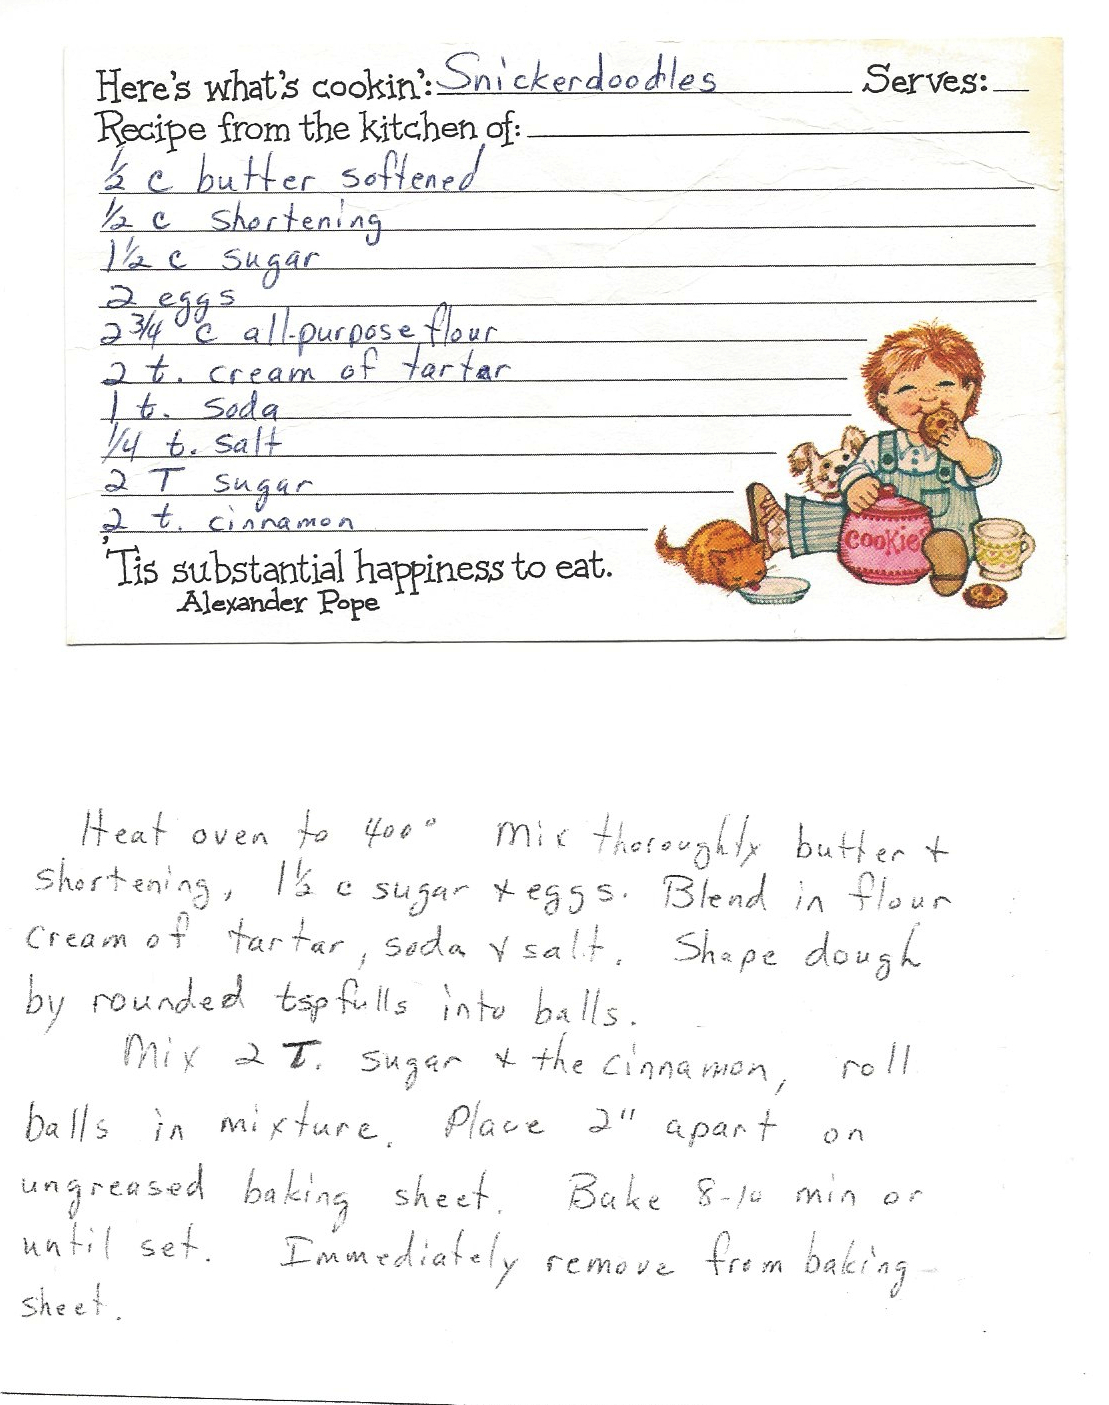 Here's what's cookin': Snickerdoodles Serves:
Recipe from the kitchen of:
½ c butter softened
½ c shortening
1½ c sugar
2 eggs
2 3/4 c all-purpose flour
2 t. cream of tartar
1 t. soda
1/4 t. salt
2 T sugar
2 t. cinnamon
'Tis substantial happiness to eat.
Alexander Pope
Cookies
Heat oven to 400° Mix thoroughly butter +
shortening, 1½ c sugar + eggs. Blend in flour
cream of tartar, soda + salt. Shape dough
by rounded tspfulls into balls.
Mix 2 T. sugar + the cinnamon, roll
balls in mixture. Place 2" apart on
ungreased baking sheet. Bake 8-10 min or
until set. Immediately remove from baking
sheet.